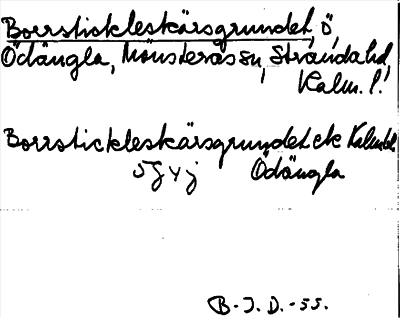 Borrstickleskärsgrundet, ö,
Ödängla, Mönsterås sn, Stranda hd,
Kalm. l.
Borrstickleskärsgrundet ek Kalmbl.
5 G y j Ödängla
B.I.D.-55.